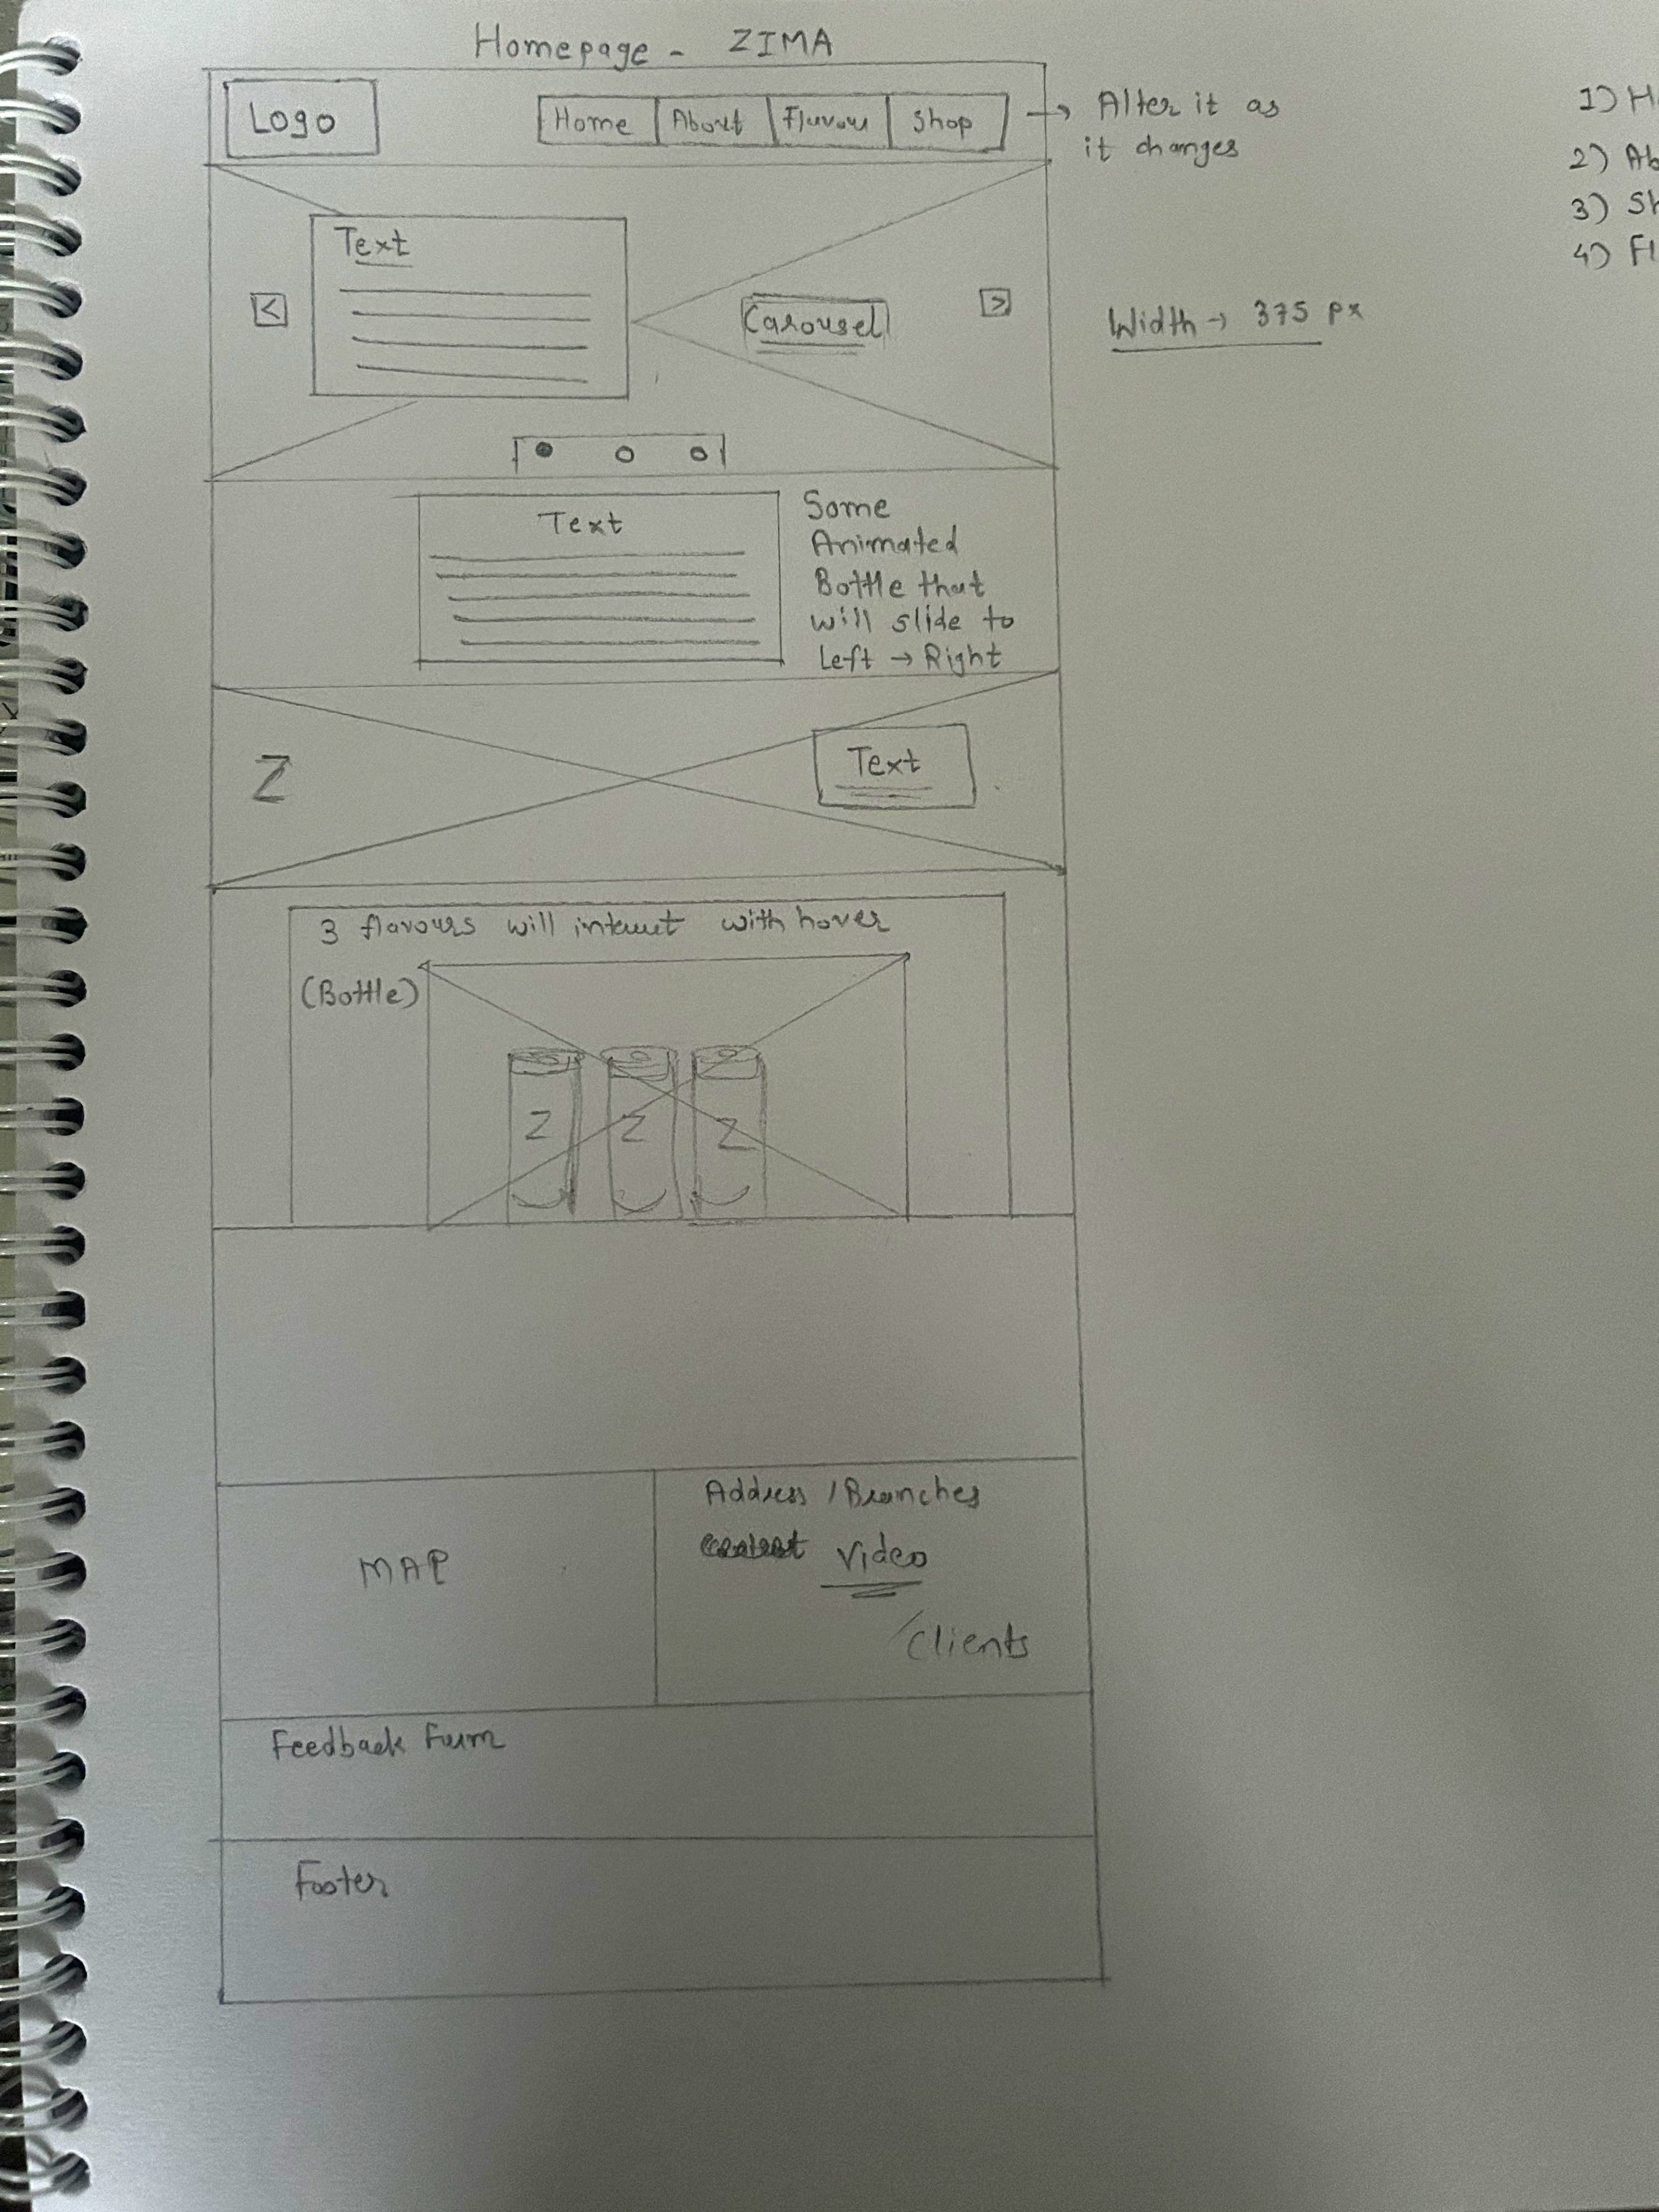 Homepage - ZIMA
Logo
Home
About
Flavour
Shop
→ Alter it as
it changes
1) H
2) Ab
3) Sh
4) Fl
Text
<
Carousel
>
Width → 375 px
Text
Some
Animated
Bottle that
will slide to
Left → Right
Z
Text
3 flavours will interact with hover
(Bottle)
Z Z Z
MAP
Address / Branches
Video
/Clients
Feedback Form
Footer